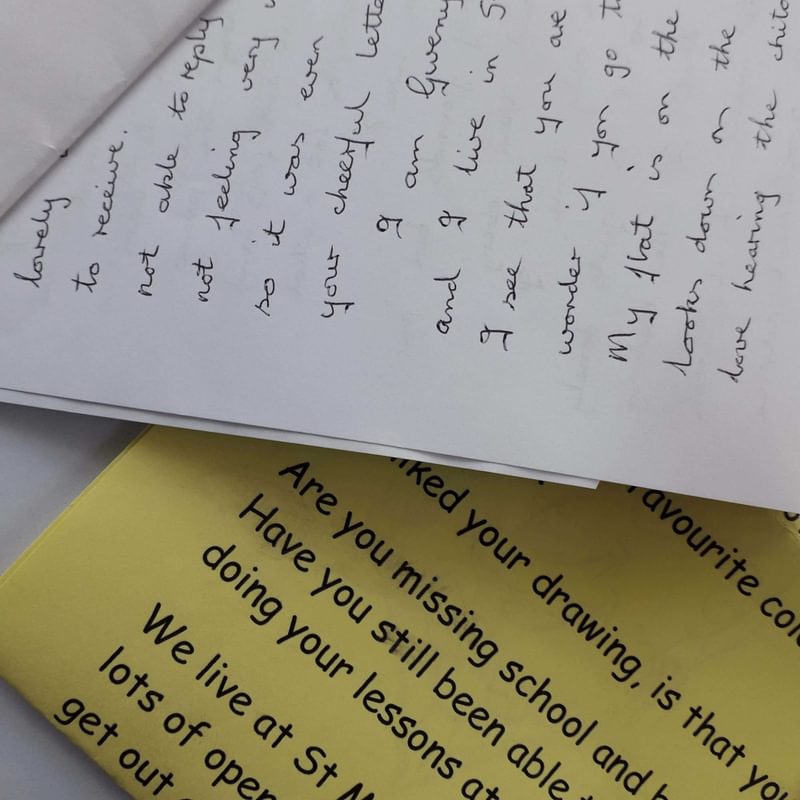 lovely
to receive.
not able to reply
not feeling very
so it was even
your cheerful
I am
and I live in
I see that you are
wonder if you go
My flat is on the
looks down on the
love hearing the
liked your drawing, is that your
favourite
Are you missing school and
Have you still been able
doing your lessons at
We live at St
lots of
get out